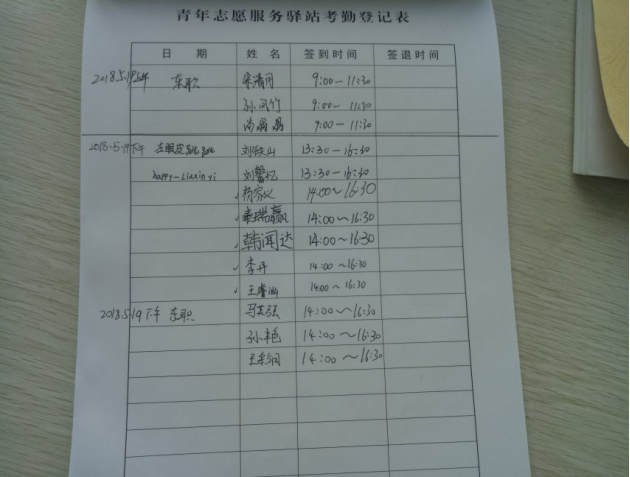 青年志愿服务驿站考勤登记表
日 期 姓 名 签到时间 签退时间
2018.5.19上午 东职 9:00-11:30
孙凤竹 9:00-11:30
9:00-11:30
2018.5.19下午 左眼皮跳跳 刘铁山 13:30-16:30
happy-Liaxin yi 刘馨忆 13:30-16:30
杨家义 14:00~16:30
秦瑞赢 14:00~16:30
韩闻达 14:00~16:30
李丹 14:00~16:30
王睿涵 14:00~16:30
2018.5.19下午 东职 马英强 14:00~16:30
孙艳 14:00~16:30
王彩润 14:00~16:30